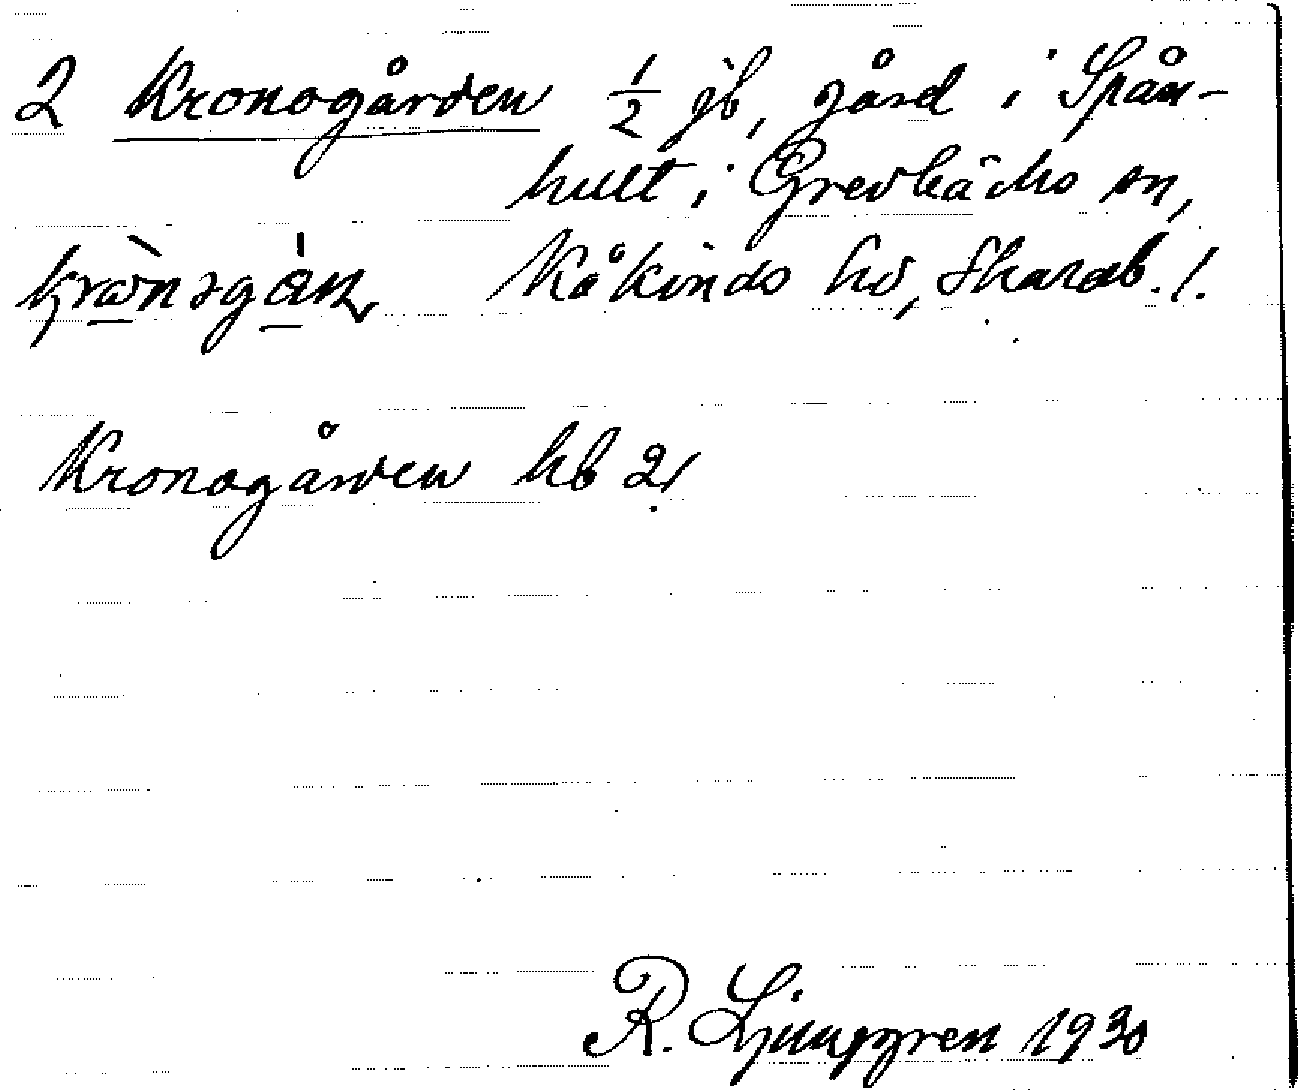 2 Kronogården 1/2 jb, gård i Spån-
hult i Grevbäcks sn,
Kåkinds hd, Skarab. l.
Kronogården hb 2
R. Ljunggren 1930